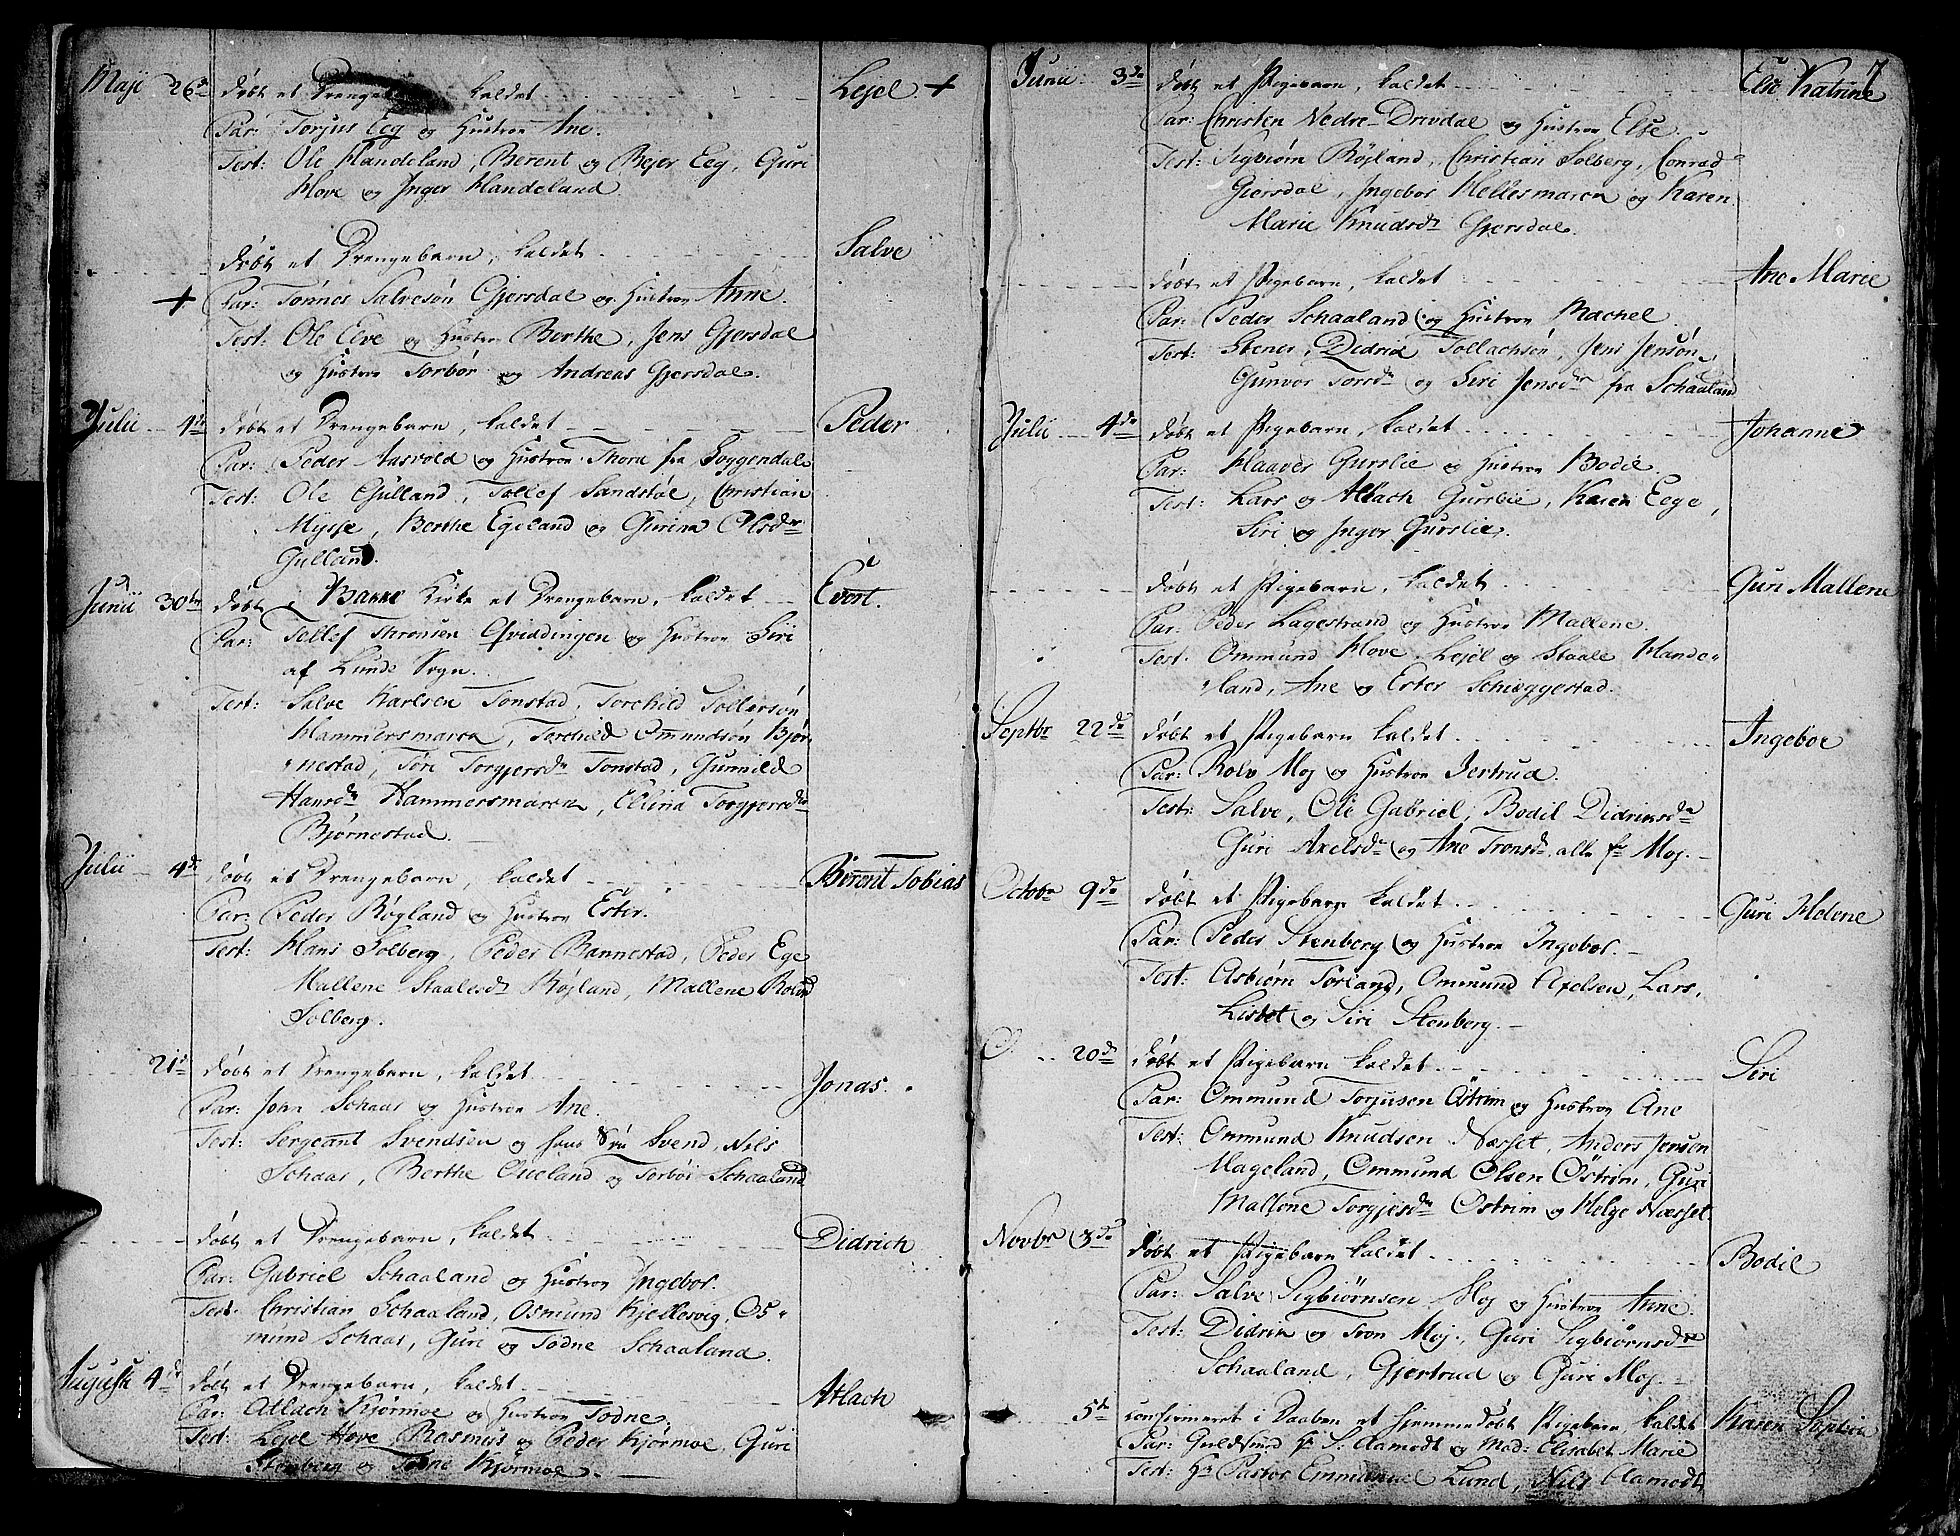 Maji 26de døbt et Drengebarn, kaldet Lejel. +
Par: Torjus Eeg og Hustroe Ane.
Test: Ole Handeland, Berent og Rejer Eeg, Guri
Hove og Inger Handeland.
døbt et Drengebarn, kaldet Salve
+ Par: Tønnes Salvesøn Gjersdal og Hustroe Anne.
Test: Ole Eeve og Hustroe Berthe, Jens Gjersdal
og Hustroe Torbør og Andreas Gjersdal.
Julii 4de døbt et Drengebarn, kaldet Peder
Par: Peder Aasvold og Hustroe Thora fra Soggendal
Test: Ole Gulland, Tollef Sandstøl, Christian
Mysse, Berthe Egeland og Gurina Olsdr
Gulland.
Junii 30te døbt i Bakke Kirke et Drengebarn, kaldet Evert.
Par: Tellef Thronsen Qviddingen og Hustroe Siri
af Lunde Sogn.
Test: Salve Karlsen Tonstad, Torchild Tollefsøn
Hammersmarca, Torchild Ommundsøn Bjør
nestad, Tøri Torgjersdr Tonstad, Gunnild
Hansdr Hammersmarca, Ellina Torgjersdr
Bjørnestad.
Julii 4de døbt et Drengebarn, kaldet Berent Tobias
Par: Peder Røgland og Hustroe Ester.
Test: Hans Solberg, Peder Bannestad, Peder Ege
Mallene Staalesdr Røjland, Mallene Rolvsd
Solberg.
21de døbt et Drengebarn, kaldet Jonas.
Par: John Schaar og Hustroe Ane.
Test: Sergeant Svendsen og hans Søn Svend, Nils
Schaar, Berthe Oueland og Torbør Schaaland
døbt et Drengebarn, kaldet Didrich
Par: Gabriel Schaaland og Hustroe Ingebor.
Test: Christian Schaaland, Osmund Kjellesvig, Os
mund Schaar, Guri og Todne Schaaland.
August 4de døbt et Drengebarn, kaldet Atlach
Par: Atlach Kjørmoe og Hustroe Todne.
Test: Lejel Hove, Rasmus og Peder Kjørmoe, Guri
Stenberg og Todne Kjørmoe.
7
Junii 3de døbt et Pigebarn, kaldet Else Katrine
Par: Christen Nedre-Drivdal og Hustroe Else.
Test: Sigbiørn Røjland, Christian Solberg, Conrad
Gjersdal, Ingebor Hellesmarca og Karen
Marie Knudsdr Gjersdal.
døbt et Pigebarn, kaldet Ane Marie
Par: Peder Schaaland og Hustroe Rachel
Test: Stener, Didrik Tollachsøn, Jens Jensøn,
Gunvor Torsdr og Siri Jensdr fra Schaaland
Julii 4de døbt et Pigebarn, kaldet Johanne
Par: Haaver Gurslie og Hustroe Bodil.
Test: Lars og Atlach Gurslie, Karen Eege,
Siri og Inger Gurslie.
døbt et Pigebarn, kaldet Guri Mallene
Par: Peder Lagestrand og Hustroe Mallene.
Test: Ommund Hove, Lejel og Staale Hande
land, Ane og Ester Schieggestad.
Septbr 22de døbt et Pigebarn kaldet Ingebor
Par: Rolv Moj og Hustroe Jertrud.
Test: Salve, Ole Gabriel, Bodil Didriksdr
Guri Axelsdr og Ane Tronsdr alle fr Moj.
Octobr 9de døbt et Pigebarn kaldet Guri Helene
Par: Peder Stenberg og Hustroe Ingebor.
Test: Asbiørn Sørland, Ommund Axelsen, Lars,
Lisbet og Siri Stenberg.
D. 20de døbt et Pigebarn kaldet Siri
Par: Ommund Torjusen Østrim og Hustroe Ane
Test: Ommund Knudsen Næsset, Anders Jensen
Mageland, Ommund Olsen Østrim, Guri
Mallene Torgjersdr Østrim og Helge Næsset.
Novbr 3de døbt et Pigebarn kaldet Bodil
Par: Salve Sigbiørnsen Moj og Hustroe Anne.
Test: Didrik og Tron Moj, Guri Sigbiørnsdr
Schaaland, Gjertrud og Guri Moj.
5te confirmeret i Daaben et hjemmedøbt Pigebarn, kaldet Karen Sophia
Par: Aamodt og Mad: Elisabet Marie
Test: Hr Pastor Emmanuel Lund, Nils Aamodt